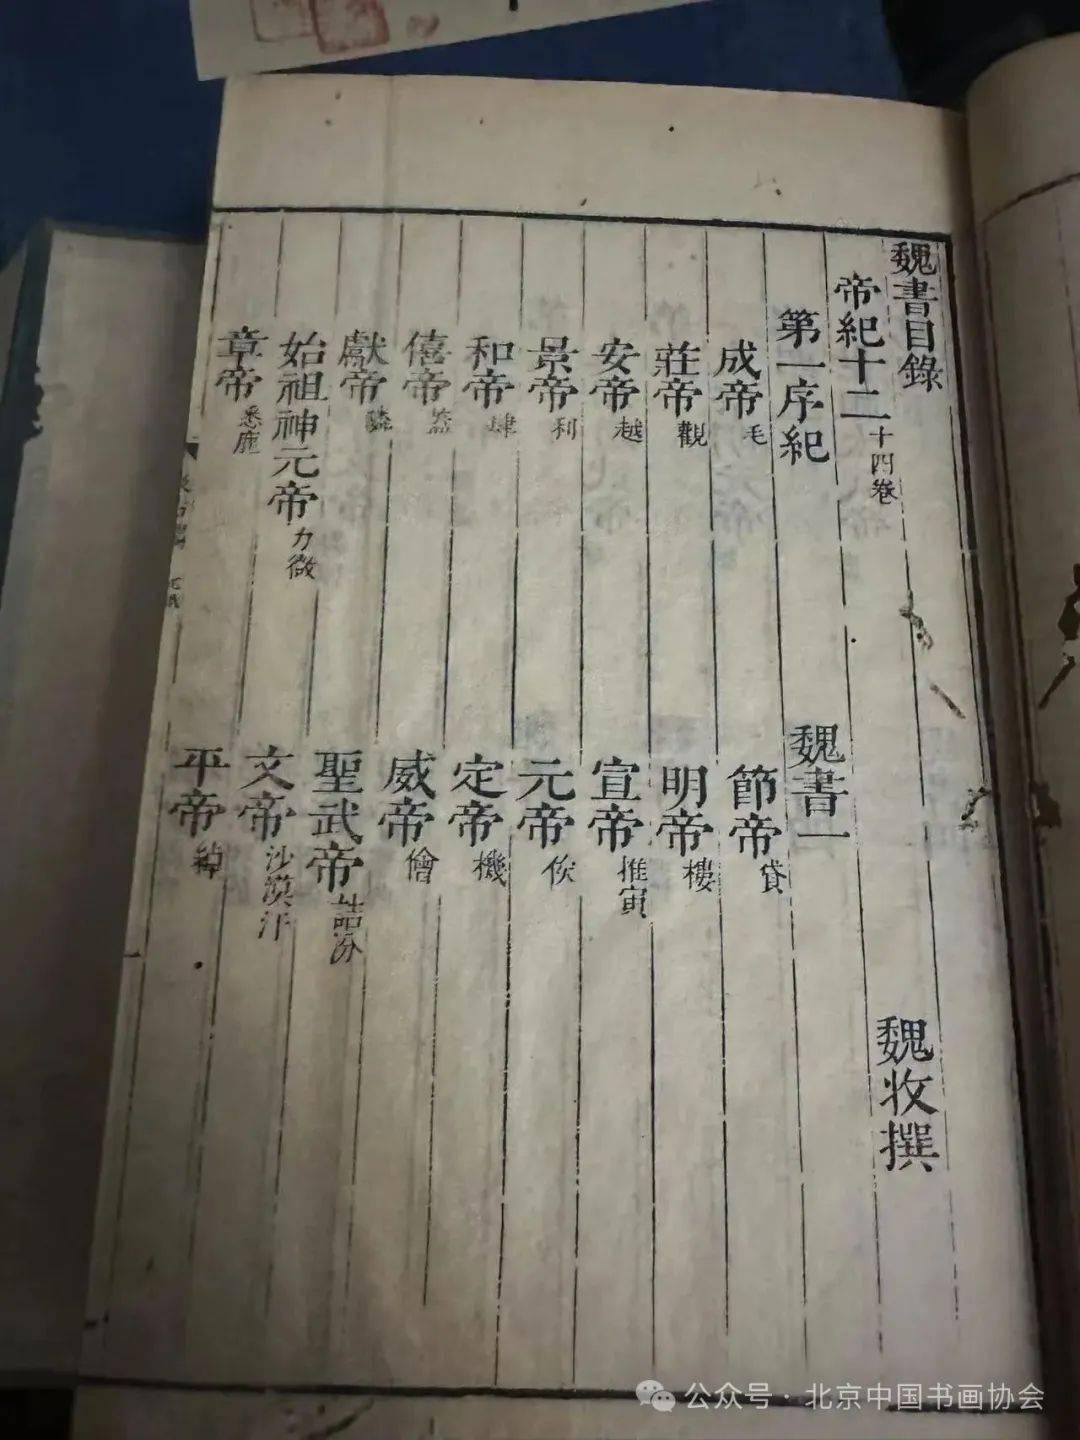 魏書目錄 魏收撰
帝紀十二 十四卷
第一序紀 魏書一
成帝 毛 節帝 貸
莊帝 觀 明帝 樓
安帝 越 宣帝 推寅
景帝 利 元帝 俟
和帝 肆 定帝 機
僖帝 蓋 威帝 儈
獻帝 隣 聖武帝 詰汾
始祖神元帝 力微 文帝 沙漠汗
章帝 悉鹿 平帝 綽
公众号·北京中国书画协会